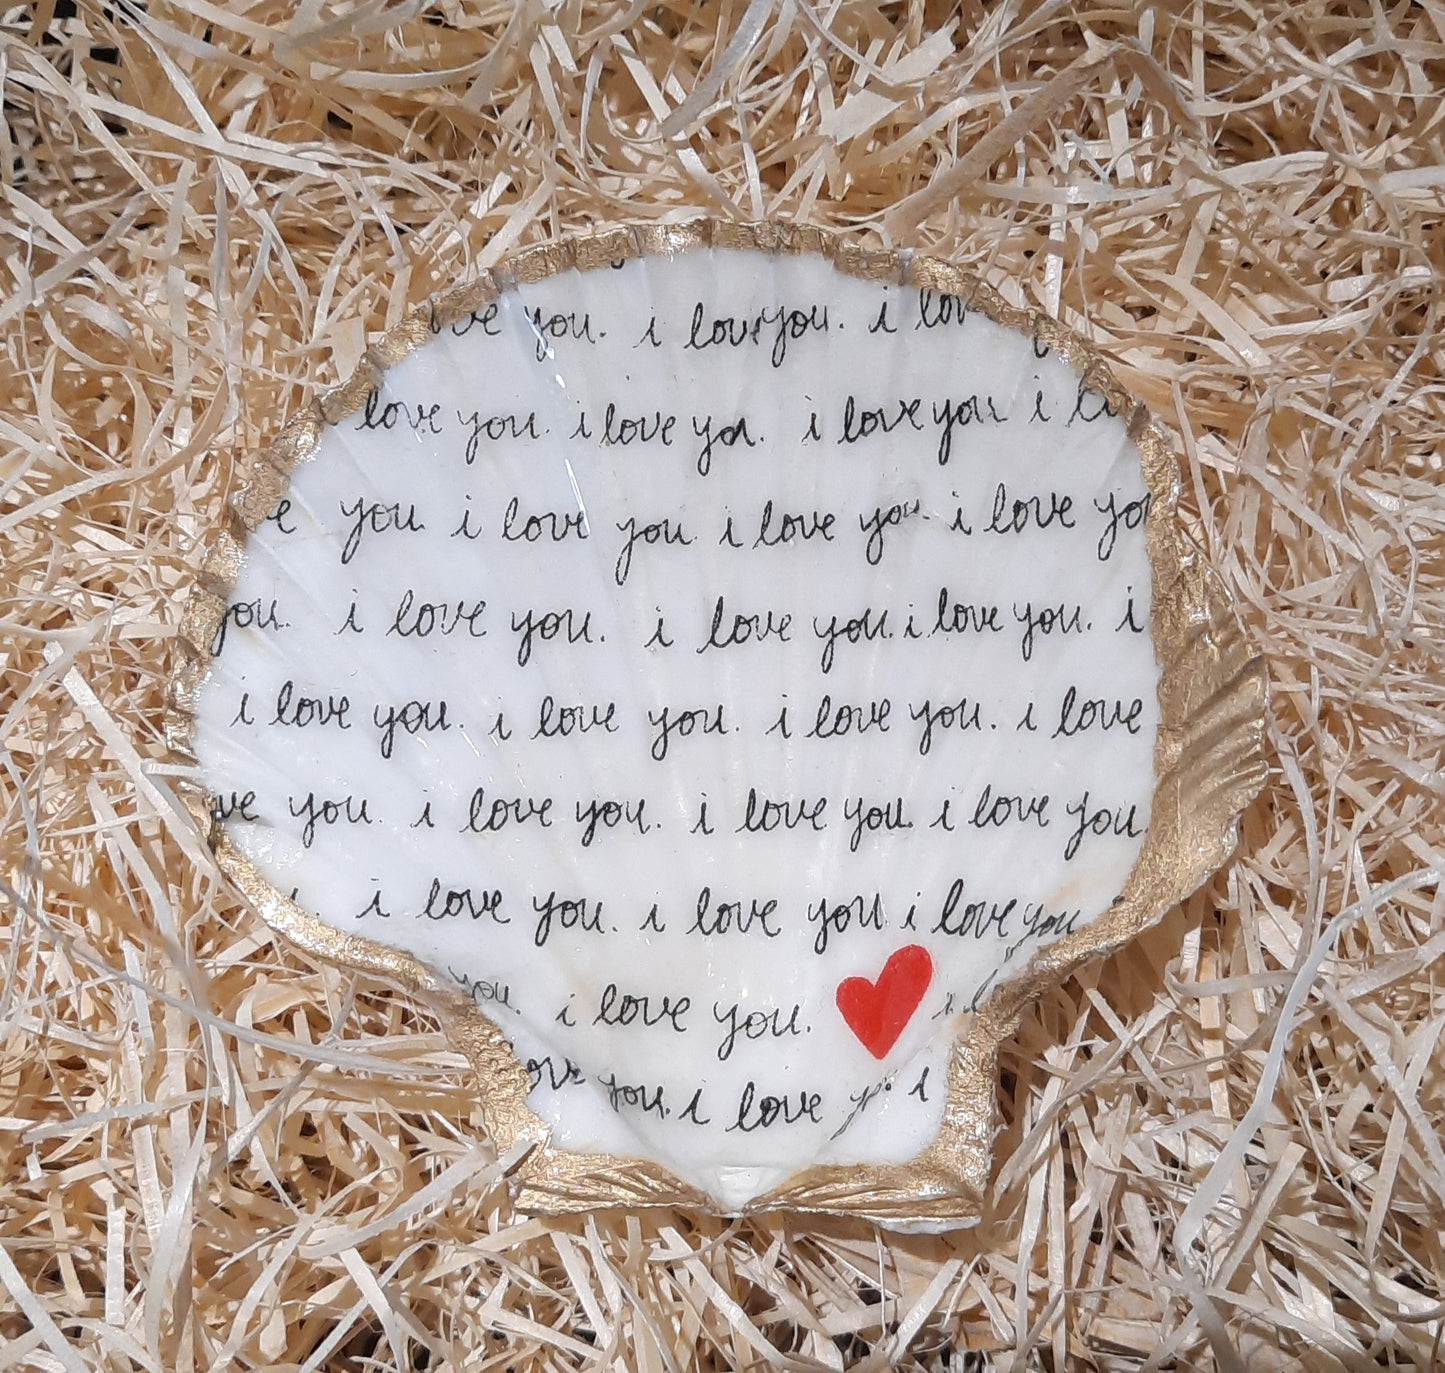 you. i love you. i
love you. i love you. i love you i
you. i love you i love you. i love
you. i love you. i love you. i love you. i
i love you. i love you. i love you. i love
you. i love you. i love you. i love you.
i love you. i love you i love you
you. i love you.
you. i love